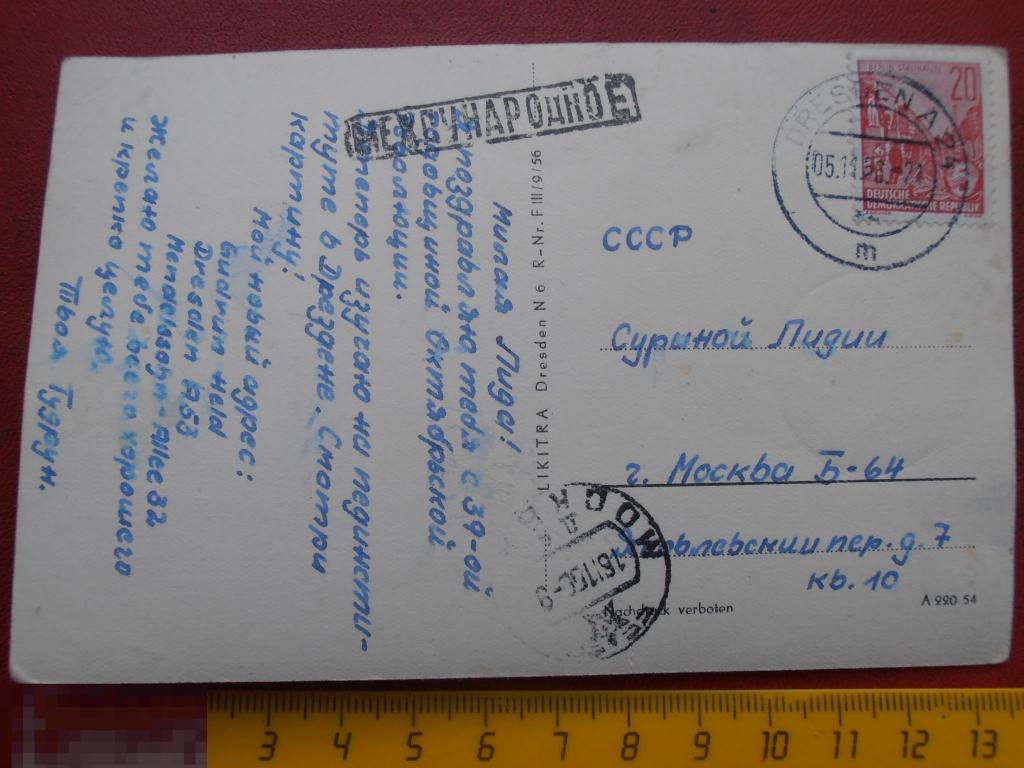 МЕЖДУНАРОДНОЕ
Милая Лида!
Я поздравляю тебя с 39-ой
годовщиной Октябрьской
революции.
Теперь изучаю на пединсти-
туте в Дрездене. Смотри
картину!
Мой новый адрес:
Gudrun Held
Dresden A53
Mendelssohn-Allee 32
Желаю тебе всего хорошего
и крепко целую.
Твоя Гудрун.
LIKITRA Dresden N 6 R-Nr. F III/9/56
DRESDEN A 24
05.11.56.-21
m
20
DEUTSCHE
DEMOKRATISCHE REPUBLIK
СССР
Суриной Лидии
г. Москва Б-64
пер. д. 7
кв. 10
МОСКВА
Nachdruck verboten
A 220 54
3 4 5 6 7 8 9 10 11 12 13